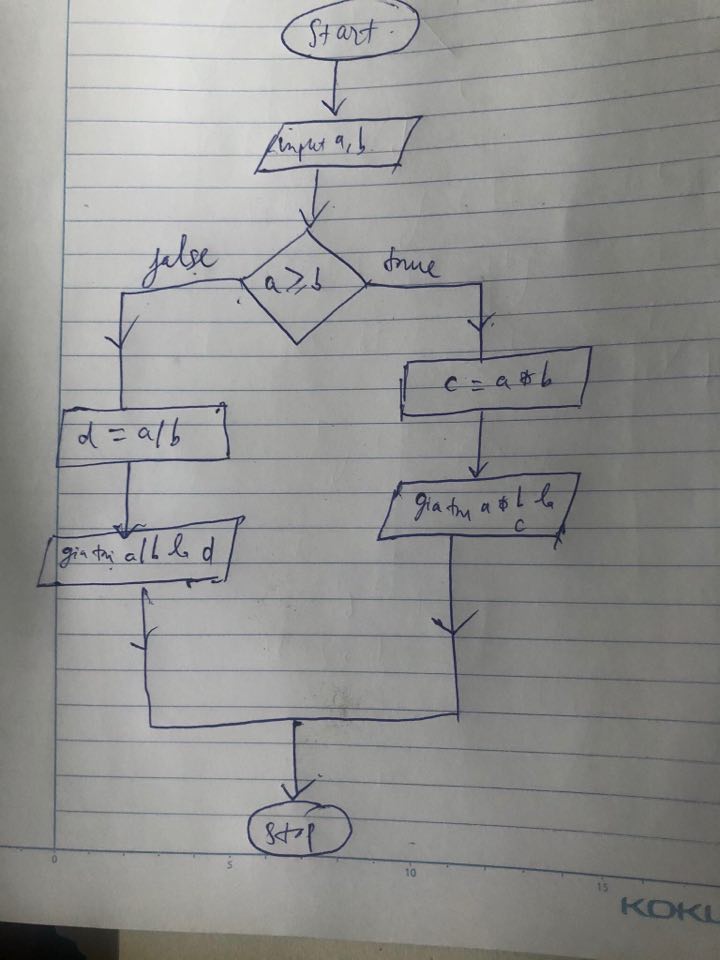 Start
input a, b
a ≥ b
false
true
c = a * b
d = a/b
gia trị a * b là
c
gia trị a/b là d
Stop
0
5
10
15
KOKU